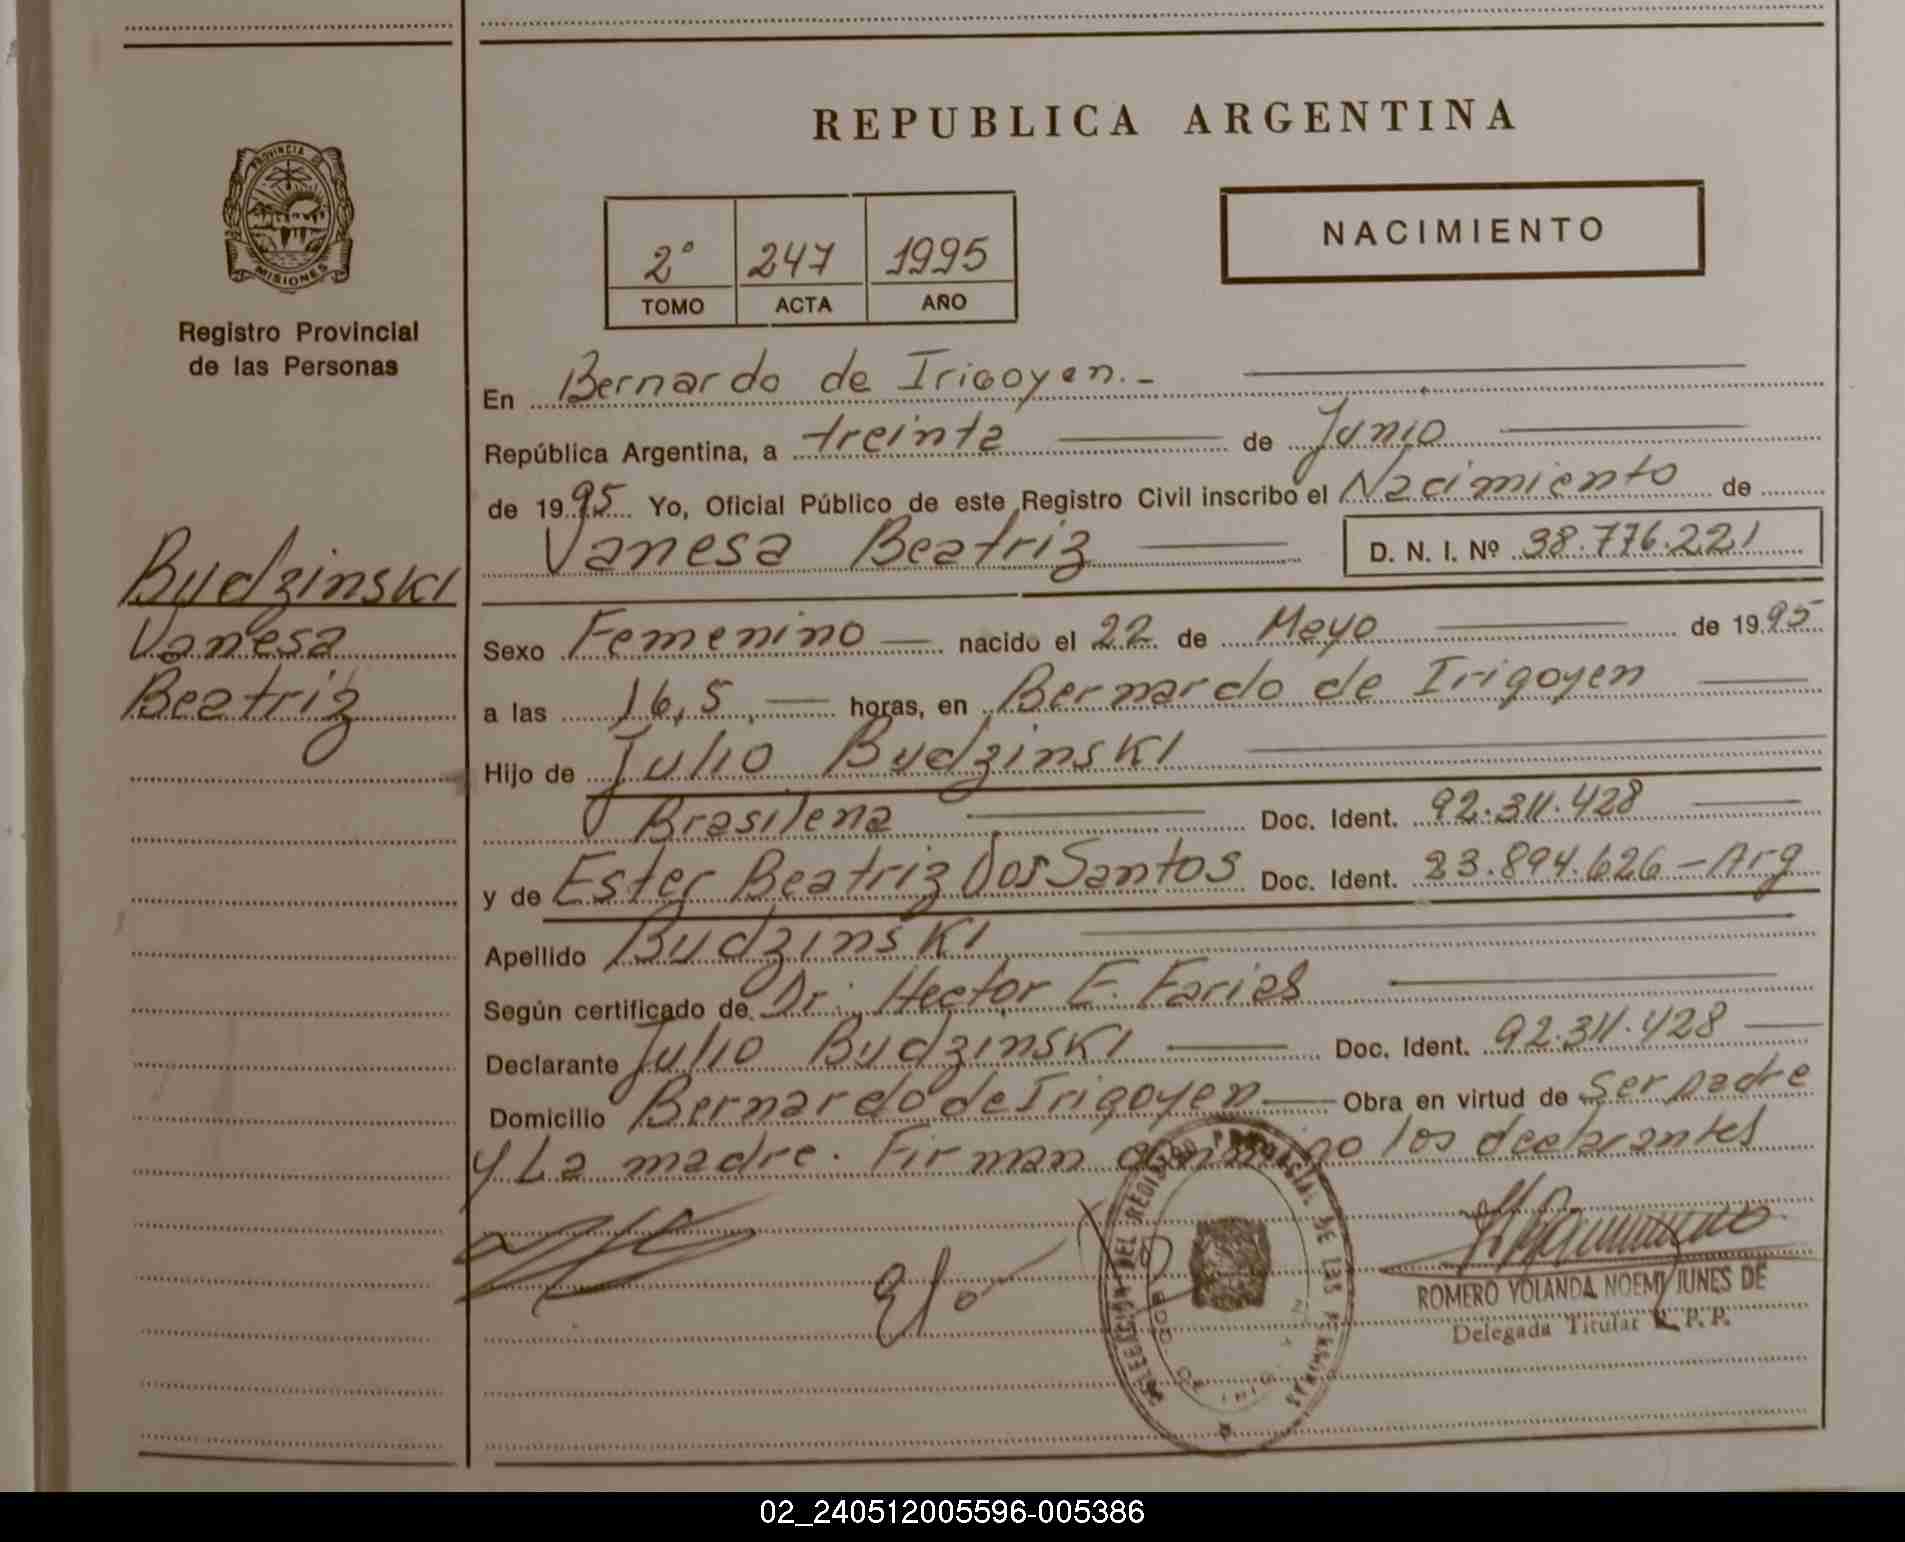 PROVINCIA DE
MISIONES
Registro Provincial
de las Personas
Budzinski
Vanesa
Beatriz
REPUBLICA ARGENTINA
2° 247 1995
TOMO ACTA AÑO
NACIMIENTO
En Bernardo de Irigoyen.-
República Argentina, a treinta de Junio
de 1995 Yo, Oficial Público de este Registro Civil inscribo el Nacimiento de
Vanesa Beatriz D. N. I. Nº 38.776.221
Sexo Femenino nacido el 22 de Mayo de 1995
a las 16,5 horas, en Bernardo de Irigoyen
Hijo de Julio Budzinski
Brasilena Doc. Ident. 92.311.428
y de Ester Beatriz Dos Santos Doc. Ident. 23.894.626-Arg
Apellido Budzinski
Según certificado de Dr. Hector E. Farias
Declarante Julio Budzinski Doc. Ident. 92.311.428
Domicilio Bernardo de Irigoyen Obra en virtud de ser padre
y La madre. Firman conmigo los declarantes
DEL REGISTRO PROVINCIAL DE LAS PERSONAS
ROMERO YOLANDA NOEMI JUNES DE
Delegada Titular R. P. P.
02_240512005596-005386